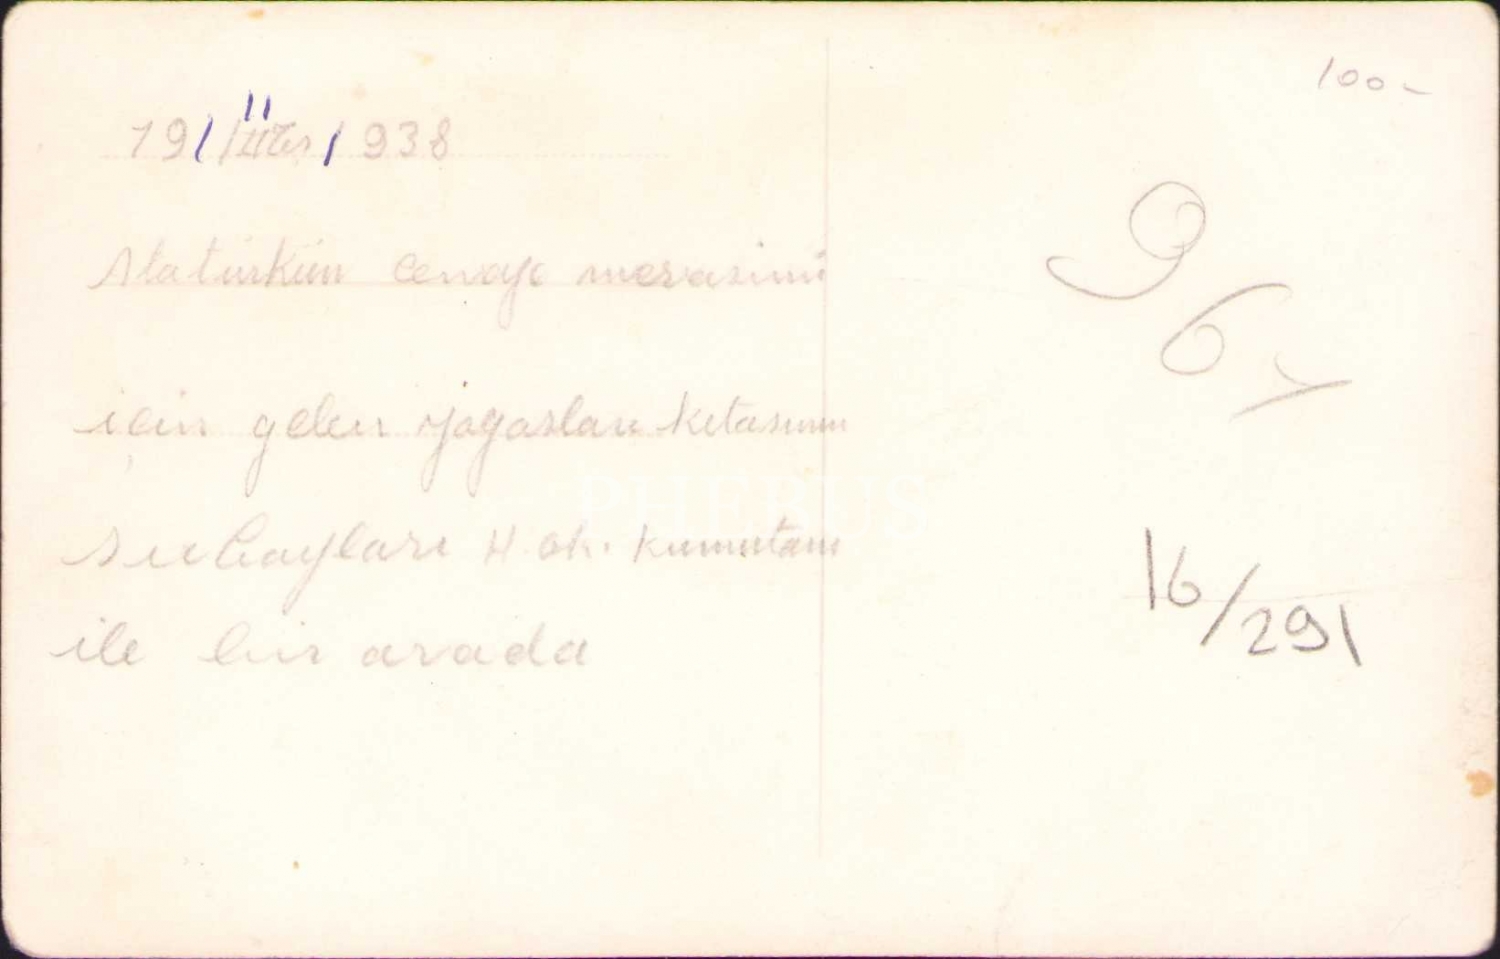 100-
19/11/1938
Atatürkün cenaze merasimi
için gelen yogoslav kıtasının
subayları H. ok. kumutanı
ile bir arada
96
16/291
PHEBUS